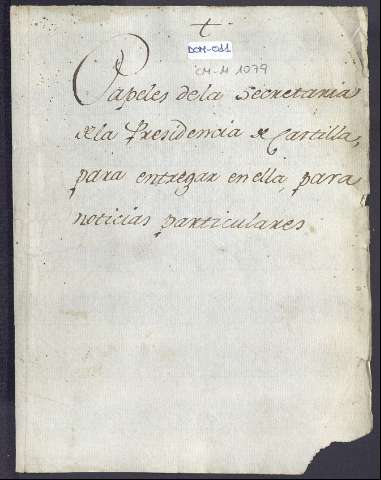 +
DCM-011
CM-H 1079
Papeles dela Secretaria
de la Presidencia de Castilla,
para entregar en ella, para
noticias particulares